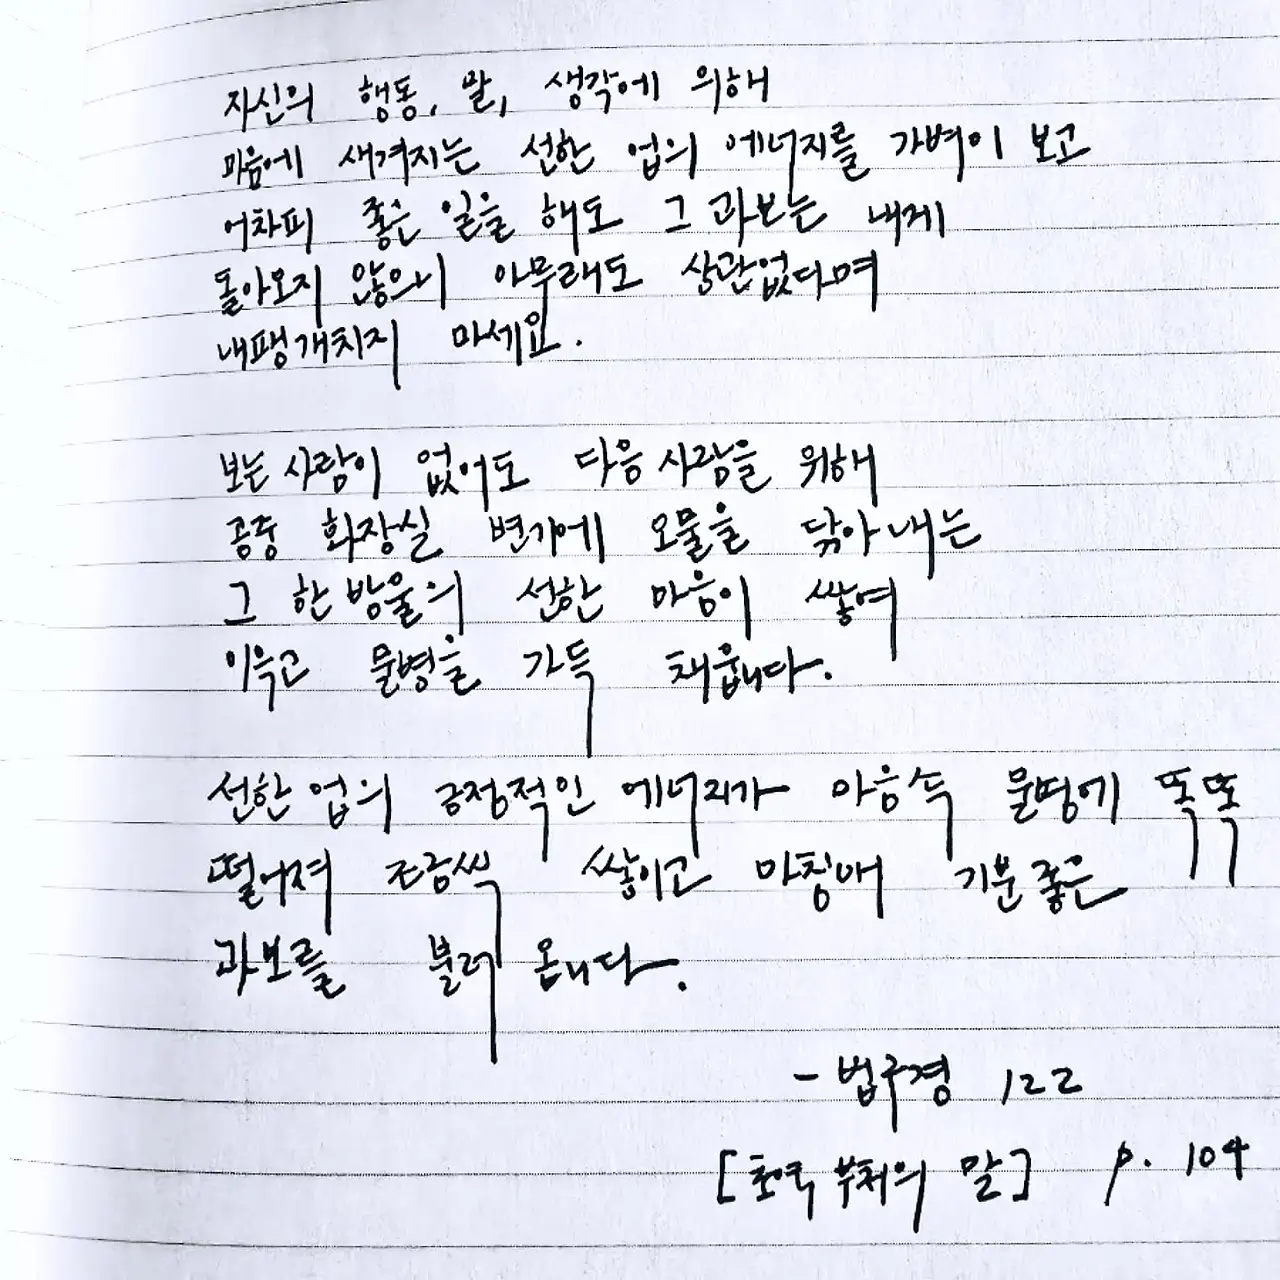 자신의 행동, 말, 생각에 의해
마음에 새겨지는 선한 업의 에너지를 가벼이 보고
어차피 좋은 일을 해도 그 과보는 내게
돌아오지 않으니 아무래도 상관없다며
내팽개치지 마세요.
보는 사람이 없어도 다음 사람을 위해
공중 화장실 변기에 오물을 닦아내는
그 한 방울의 선한 마음이 쌓여
이윽고 물병을 가득 채웁니다.
선한 업의 긍정적인 에너지가 마음속 물병에 똑똑
떨어져 조금씩 쌓이고 마침내 기분 좋은
과보를 불러 온니다.
- 법구경 122
[초역 부처의 말] p. 104